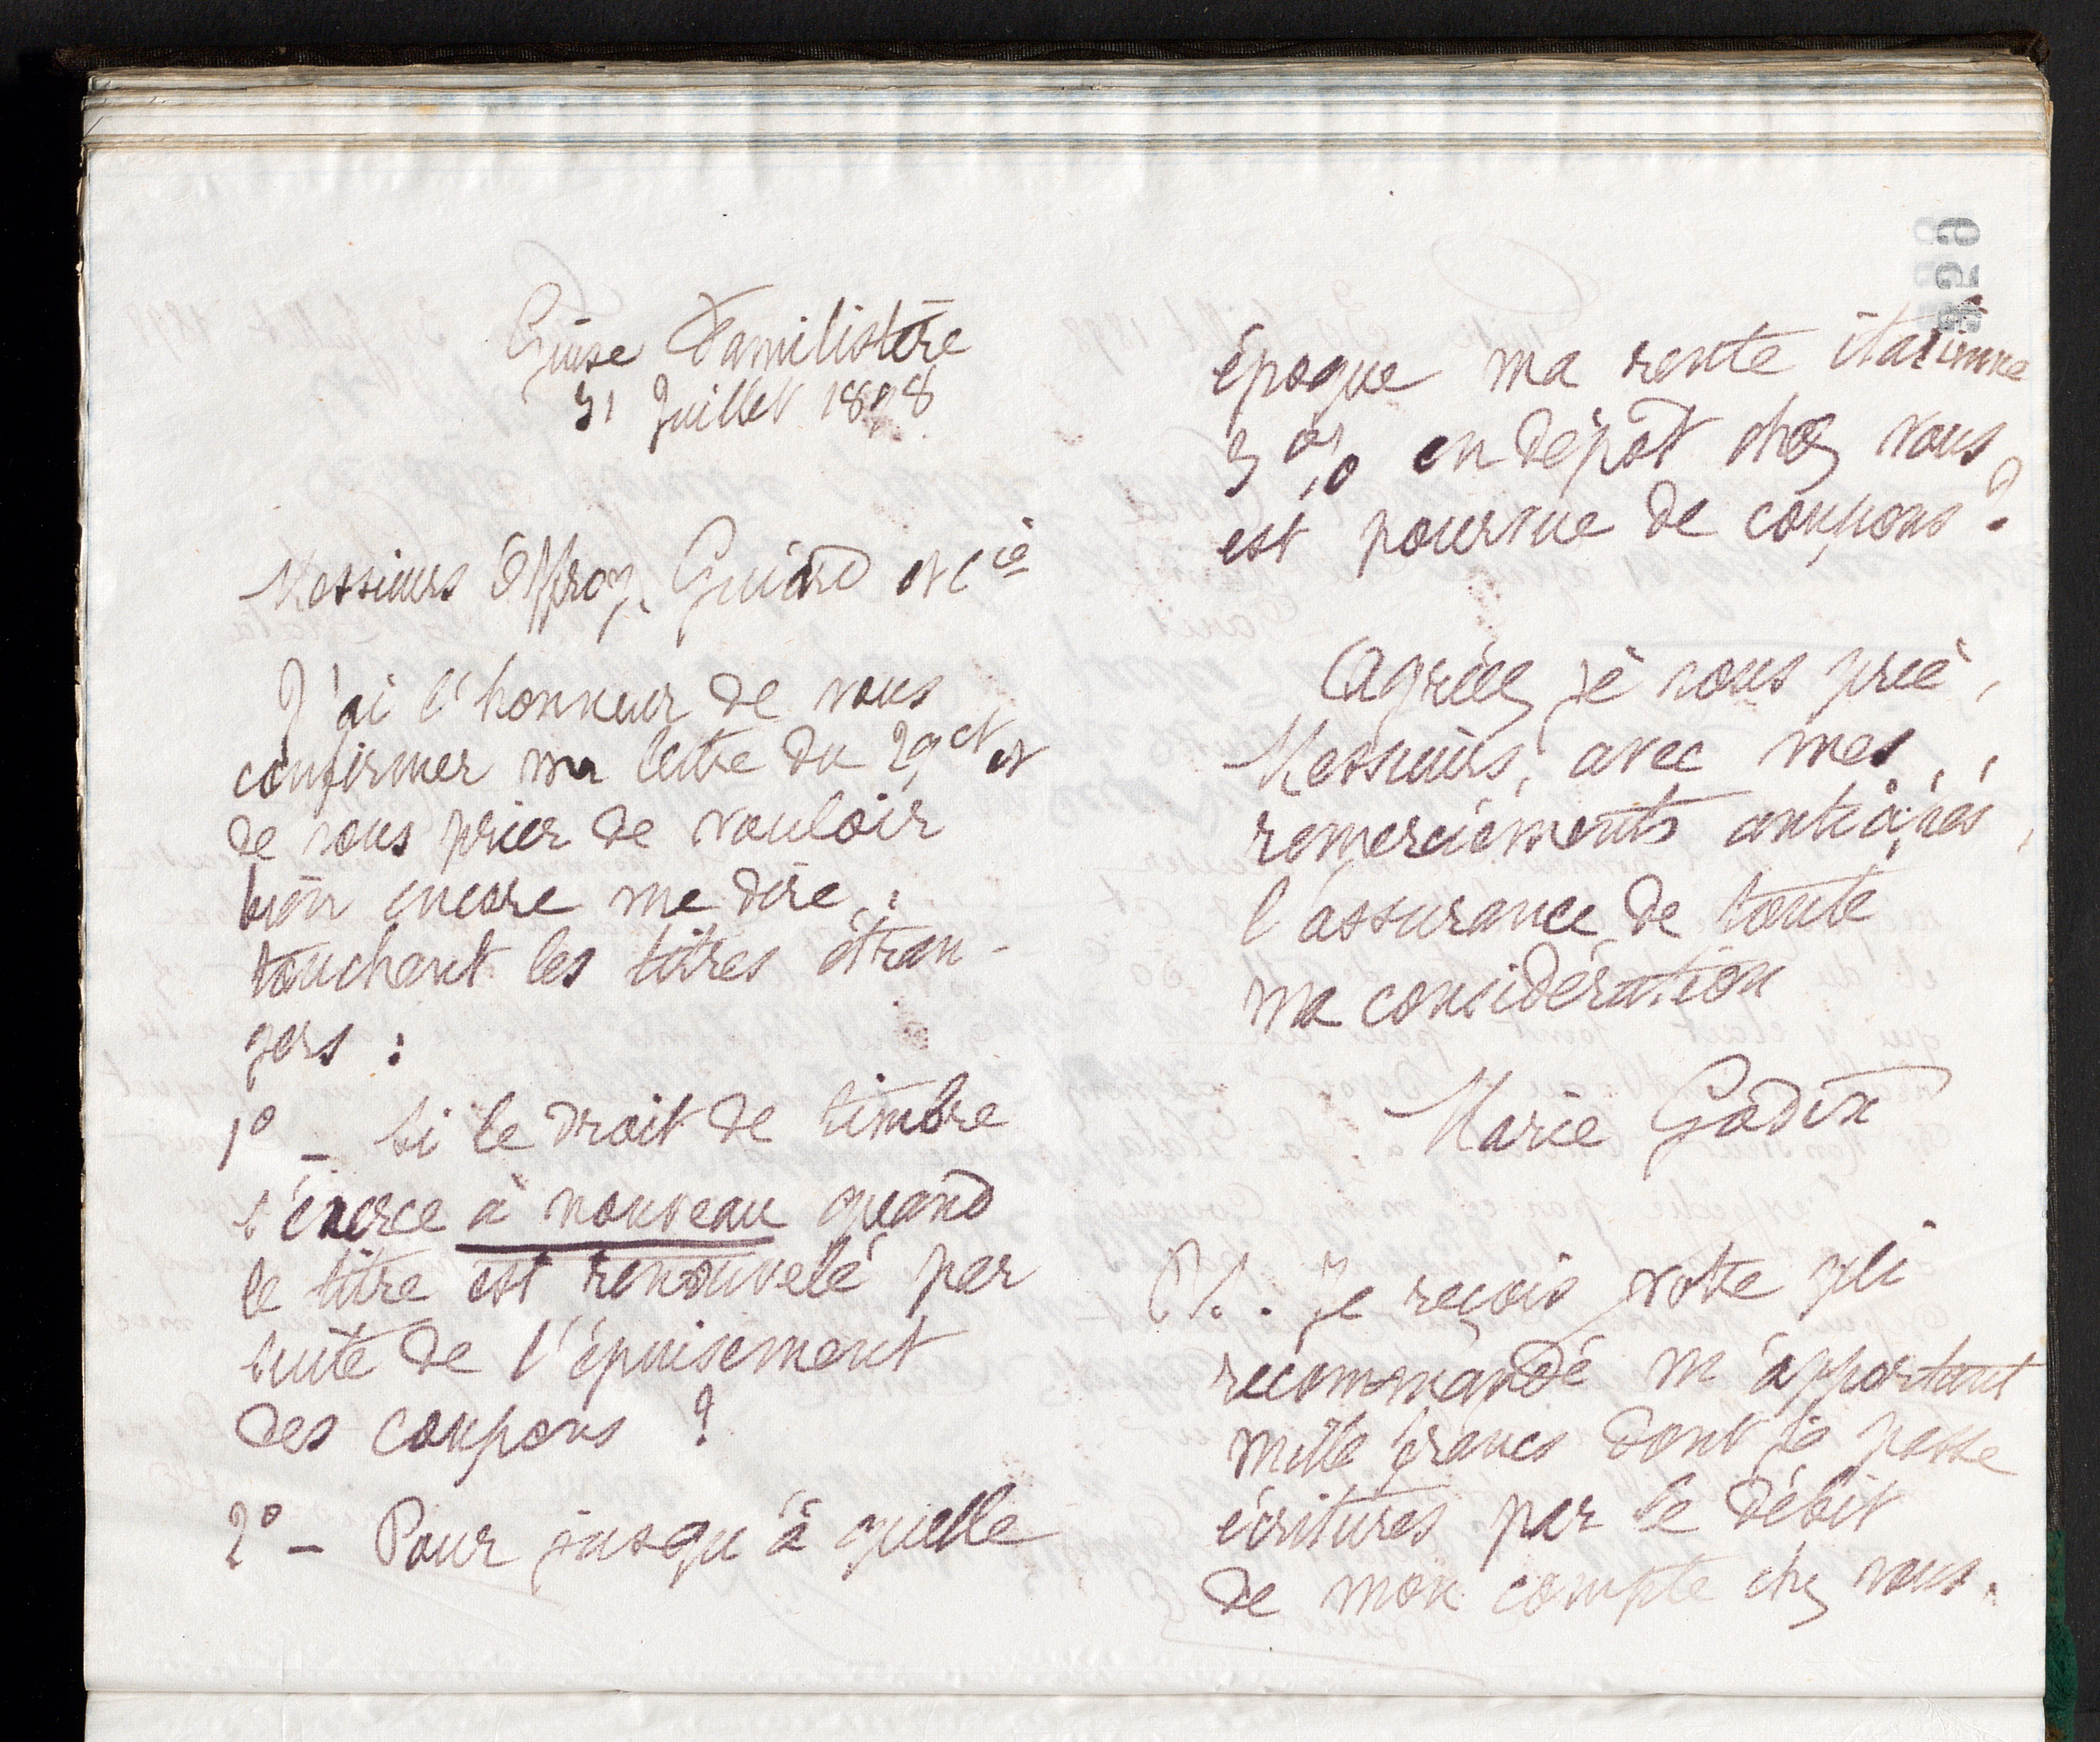 Guise Familistère
31 Juillet 1898
Messieurs Offroy, Guiard et Cie
J'ai l'honneur de vous
confirmer ma lettre du 29 ct et
de vous prier de vouloir
bien encore me dire,
touchant les titres étran-
gers :
1° - Si le droit de timbre
s'exerce à nouveau quand
le titre est renouvelé par
suite de l'épuisement
des coupons ?
2° - Pour jusqu'à quelle
époque ma rente italienne
5 % en dépôt chez vous
est pourvue de coupons ?
Agréez je vous prie,
Messieurs, avec mes
remerciements anticipés,
l'assurance de toute
ma considération
Marie Godin
P.S. Je reçois votre pli
recommandé m'apportant
mille francs dont je passe
écritures par le débit
de mon compte chez vous.